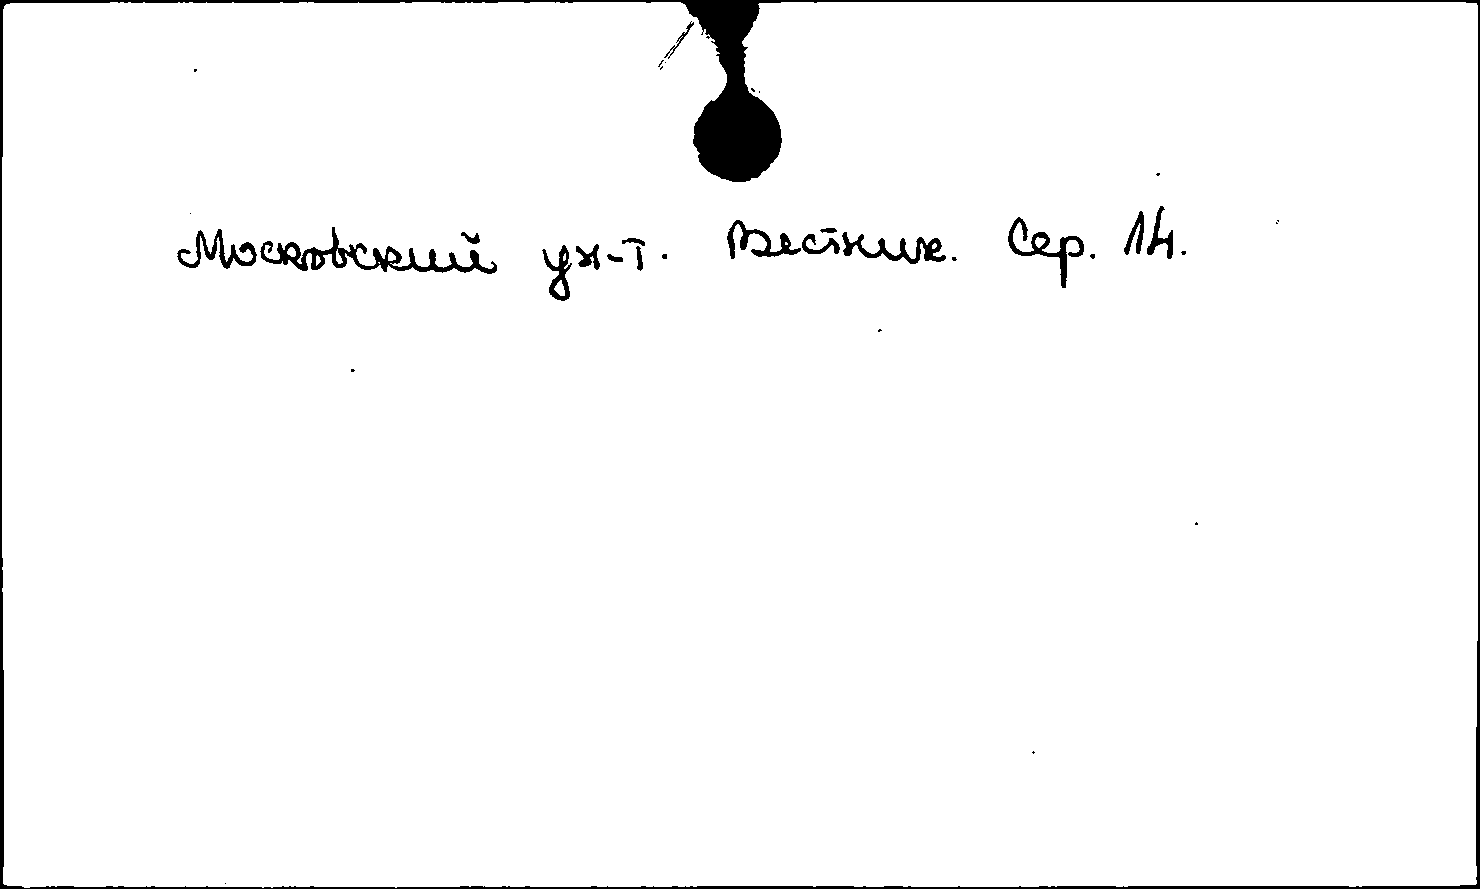 Московский ун-т. Вестник. Сер. 14.